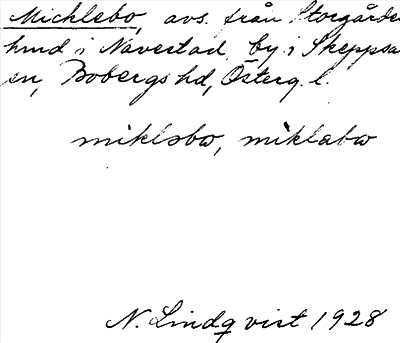 Michlebo, avs. från Storgårde
hmd i Navestad by i Skeppsa
sn, Bobergs hd, Österg. l.
miklsbω, mìklabω
N. Lindqvist 1928